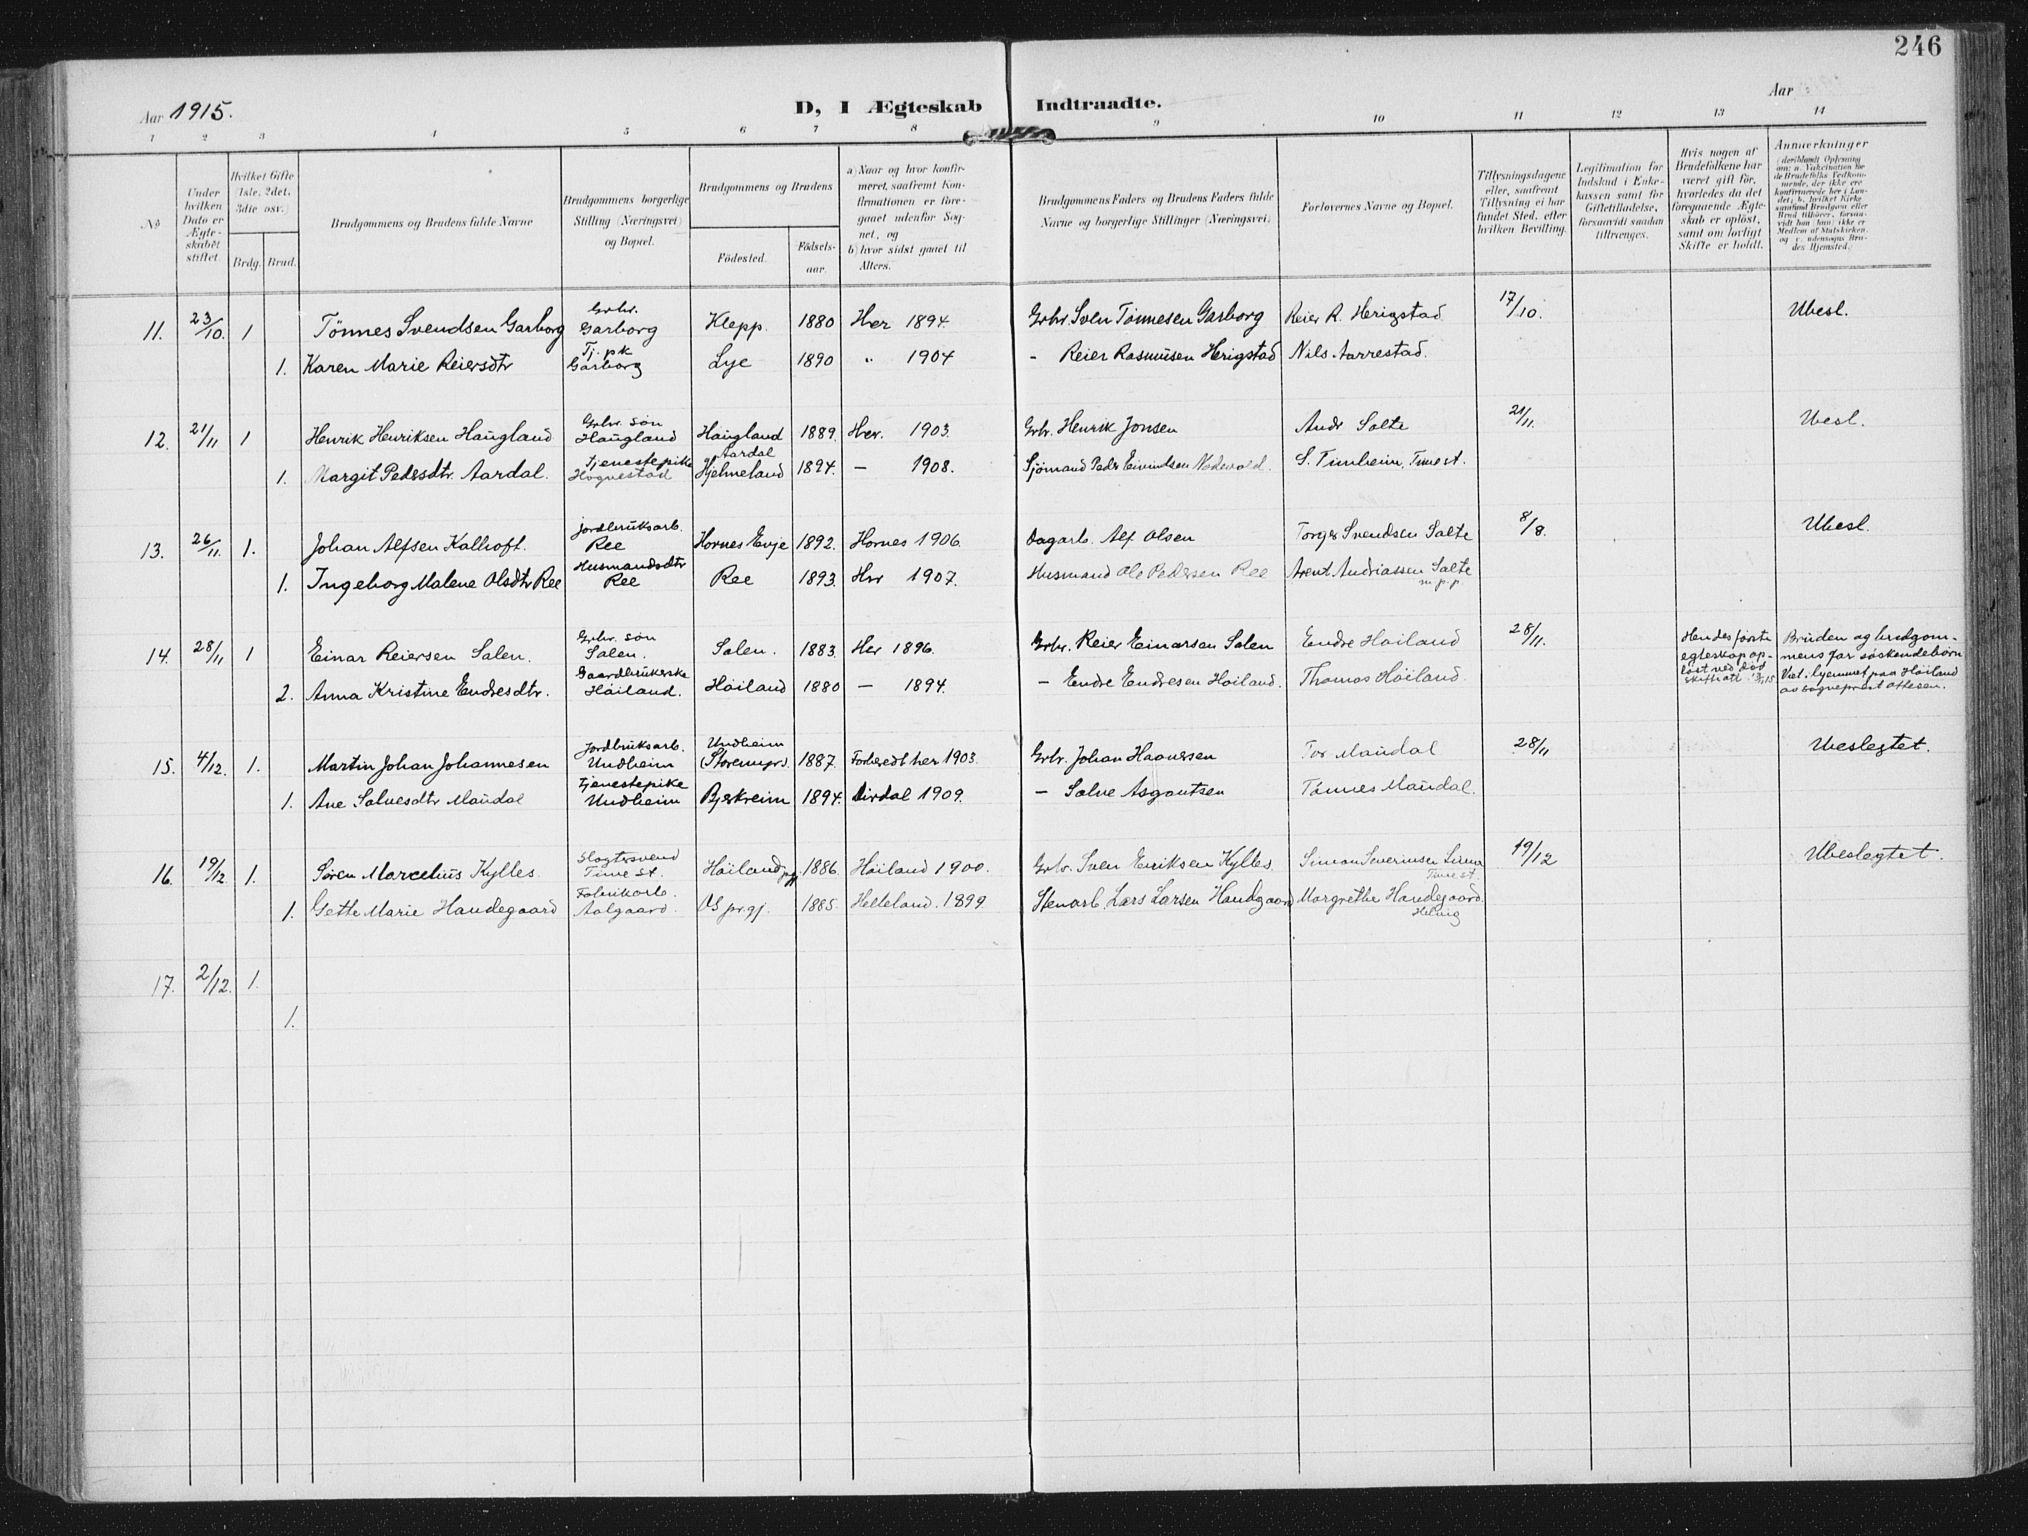 246
Aar 1915.
D, I Ægteskab Indtraadte.
Aar
1 2 3 4 5 6 7 8 9 10 11 12 13 14
No
Under hvilken Dato er Ægteskabet stiftet.
Hvilket Gifte (1ste, 2det, 3die osv.)
Brdg. Brud.
Brudgommens og Brudens fulde Navne
Brudgommens borgerlige Stilling (Næringsvei) og Bopæl.
Brudgommens og Brudens
Fødested.
Fødselsaar.
a) Naar og hvor konfirmeret, saafremt Konfirmationen er foregaaet udenfor Sognet, og
b) hvor sidst gaaet til Alters.
Brudgommens Faders og Brudens Faders fulde Navne og borgerlige Stillinger (Næringsvei)
Forlovernes Navne og Bopæl.
Tillysningsdagene eller, saafremt Tillysning ei har fundet Sted, efter hvilken Bevilling.
Legitimation for Indskud i Enkekassen samt for Giftetilladelse, forsaavidt saadan tiltrænges.
Hvis nogen af Brudefolkene har været gift før, hvorledes da det foregaaende Ægteskab er opløst, samt om lovligt Skifte er holdt.
Anmærkninger
(deriblandt Oplysning om: a. Vakcination for de Brudefolks Vedkommende, der ikke ere konfirmerede her i Landet; b. hvilket Kirkesamfund Brudgom eller Brud tilhører, forsaavidt han (hun) ikke er Medlem af Statskirken, og c. udensogns Brudes Hjemsted.)
11. 23/10. 1 Tönnes Svendsen Garborg Grbr. Garborg Klepp. 1880 Her 1894. Grbr. Sven Tönnesen Garborg Reier R. Herigstad 17/10. Ubesl.
1. Karen Marie Reiersdtr Tj. pk Garborg Lye 1890 " 1904 - Reier Rasmusen Herigstad Nils Aarrestad.
12. 21/11 1 Henrik Henriksen Haugland Grbr. søn Haugland Haugland 1889. Her. 1903. Grbr. Henrik Jonsen Andr Salte 21/11. Ubesl.
1. Margit Pedersdtr. Aardal. Tjenestepike Hognestad Aardal Hjelmeland 1894. - 1908. Sjömand Peder Eivindsen S. Timheim, Time st.
13. 26/11. 1. Johan Alfsen Kalhoft. jordbruksarb. Ree Hornes Evje 1892. Hornes 1906. Dagarb. Alf Olsen Torger Svendsen Salte 8/8. Ubesl.
1. Ingeborg Malene Olsdtr Ree Husmandsdtr Ree Ree 1893. Her 1907. Husmand Ole Pedersen Ree Arent Andriassen Salte
m. p. p
14. 28/11 1 Einar Reiersen Salen. Grbr. søn Salen. Salen. 1883. Her 1896. Grbr. Reier Einarsen Salen Endre Høiland 28/11. Hendes første egteskap opløst ved død Bruden og brudgommens far søskendebørn
2. Anna Kristine Endresdtr. Gaardbrukerske Høiland. Høiland 1880 - 1894. - Endre Endresen Høiland. Thomas Høiland. Viet. hjemmet paa Høiland av sogneprest Ottesen.
15. 4/12. 1. Martin Johan Johannesen Jordbruksarb. Undheim Undheim 1887. Forberedt her 1903. Grbr. Johan Haaversen Tor Maudal 28/11 Ubeslegtet.
1. Ane Salvesdtr Maudal Tjenestepike Undheim Bjerkreim 1894. Dirdal 1909. - Salve Asgautsen Tönnes Maudal.
16. 19/12. 1. Søren Marcelius Kylles Slagtersvend Time st. Høiland 1886. Høiland 1900. Grbr. Sven Eriksen Kylles. Simon Severinsen Lima Time st. 19/12 Ubeslegtet.
1. Gette Marie Handegaard Fabrikarb. Aalgaard. 1885. Helleland. 1899. Stenarb. Lars Larsen Handgaard Margrethe Handegaard. Helvig
17. 2/12. 1.
1.